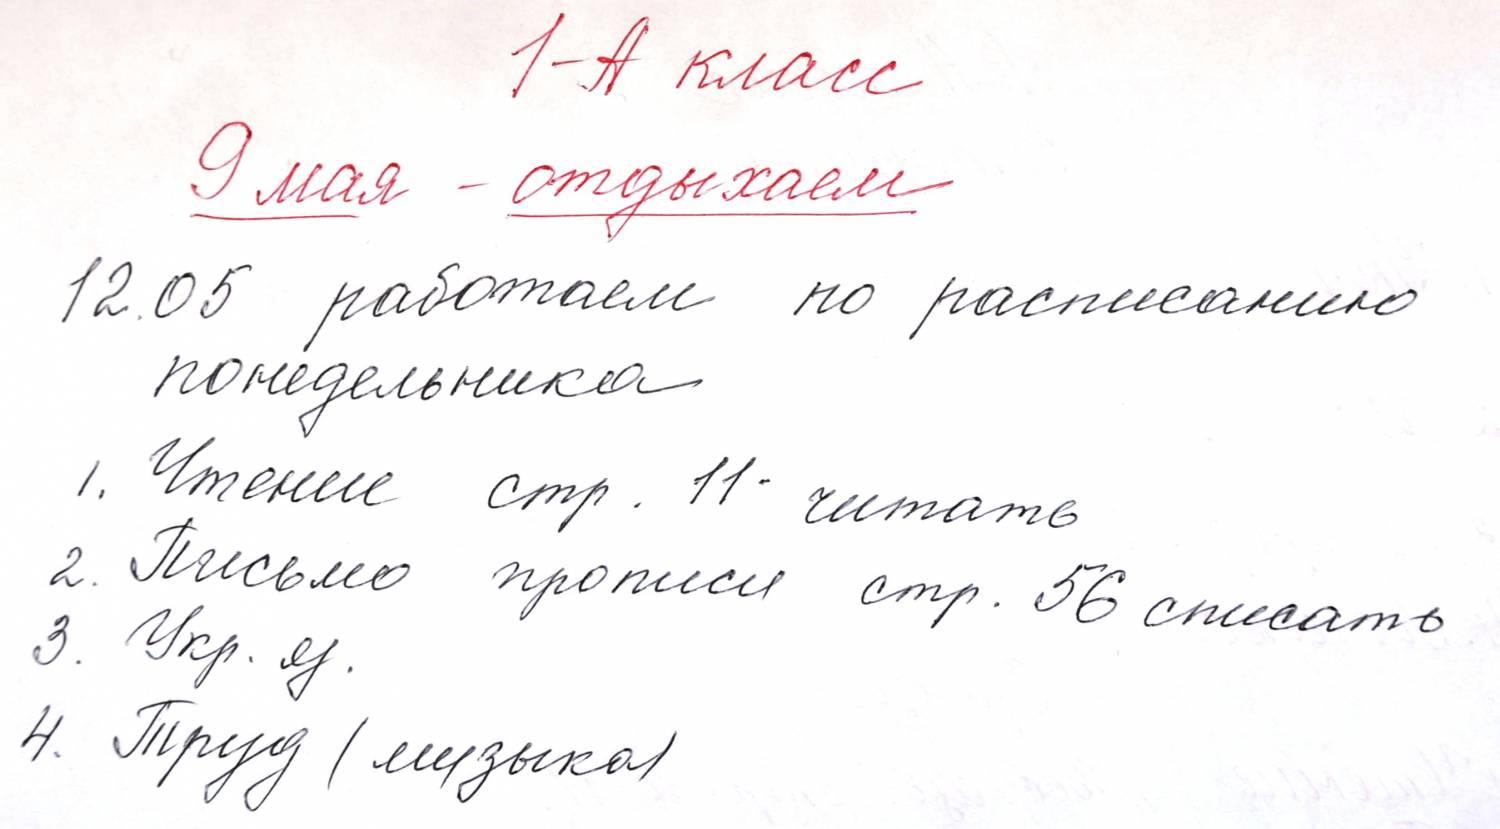 1-А класс
9 мая - отдыхаем
12.05 работаем по расписанию
понедельника
1. Чтение стр. 11 - читать
2. Письмо прописи стр. 56 списать
3. Укр. яз.
4. Труд (музыка)